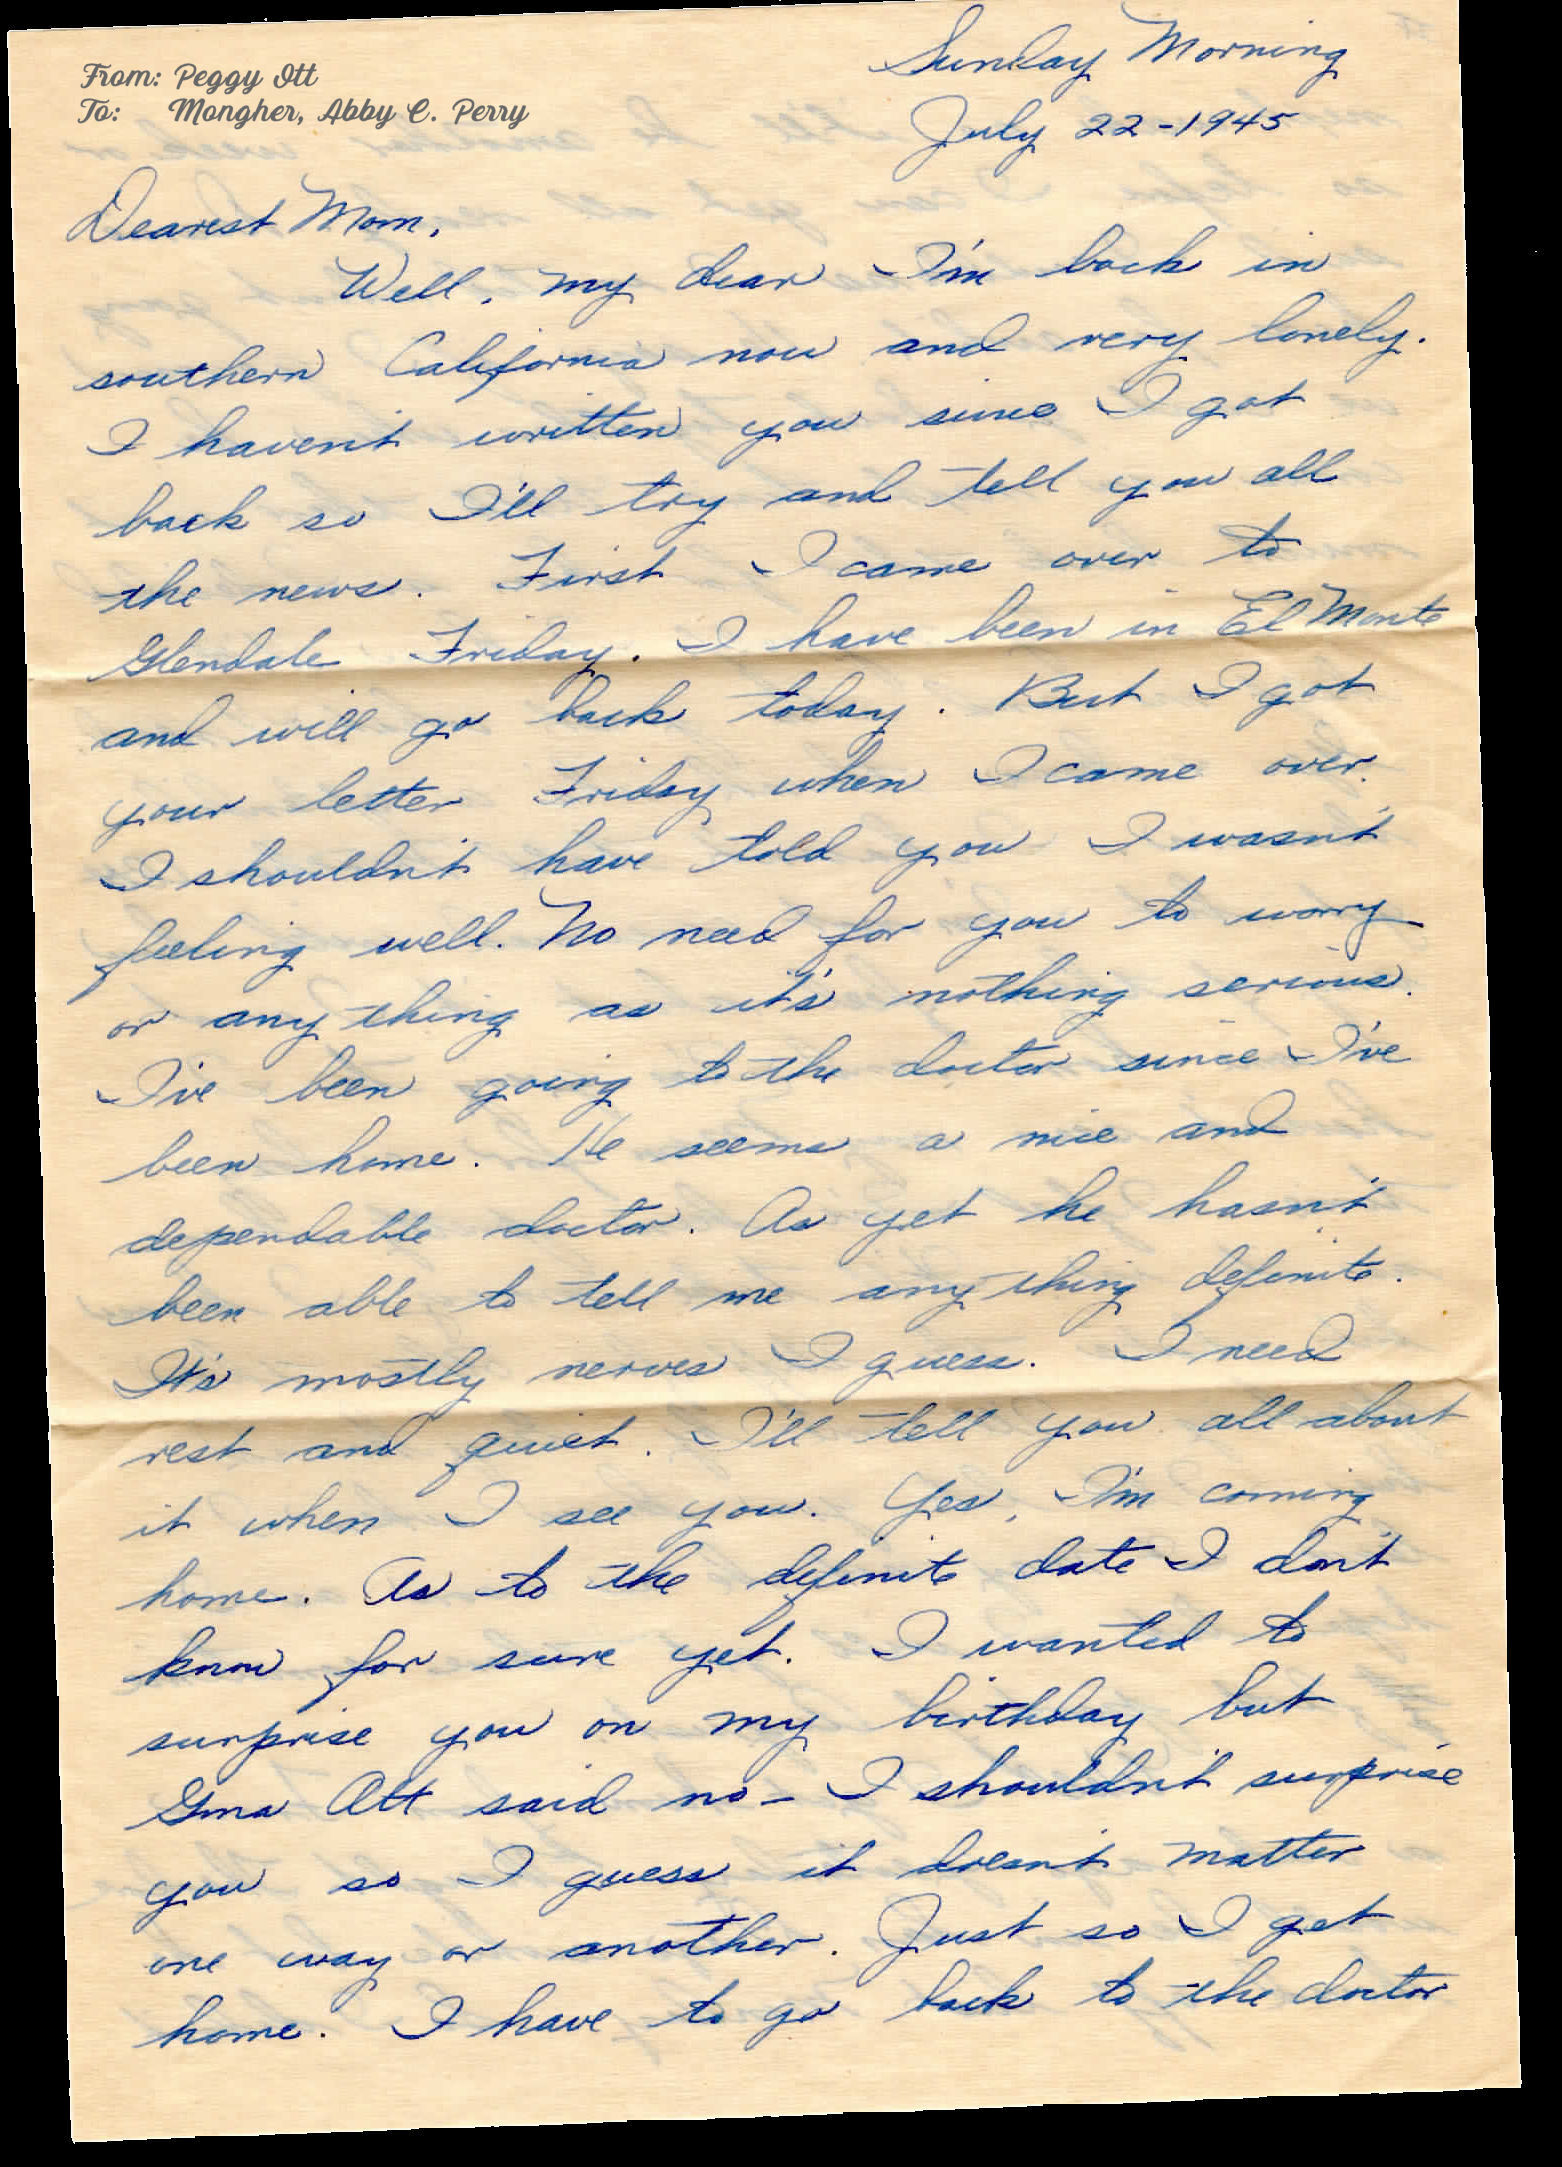 From: Peggy Ott
To: Mongher, Abby C. Perry
Sunday Morning
July 22-1945
Dearest Mom,
Well, my dear I'm back in
southern California now and very lonely.
I haven't written you since I got
back so I'll try and tell you all
the news. First I came over to
Glendale Friday. I have been in El Monte
and will go back today. But I got
your letter Friday when I came over.
I shouldn't have told you I wasn't
feeling well. No need for you to worry
or any thing as it's nothing serious.
I've been going to the doctor since I've
been home. He seems a nice and
dependable doctor. As yet he hasn't
been able to tell me any thing definite.
It's mostly nerves I guess. I need
rest and quiet. I'll tell you all about
it when I see you. Yes, I'm coming
home. As to the definite date I don't
know for sure yet. I wanted to
surprise you on my birthday but
Gma Ott said no - I shouldn't surprise
you so I guess it doesn't matter
one way or another. Just so I get
home. I have to go back to the doctor